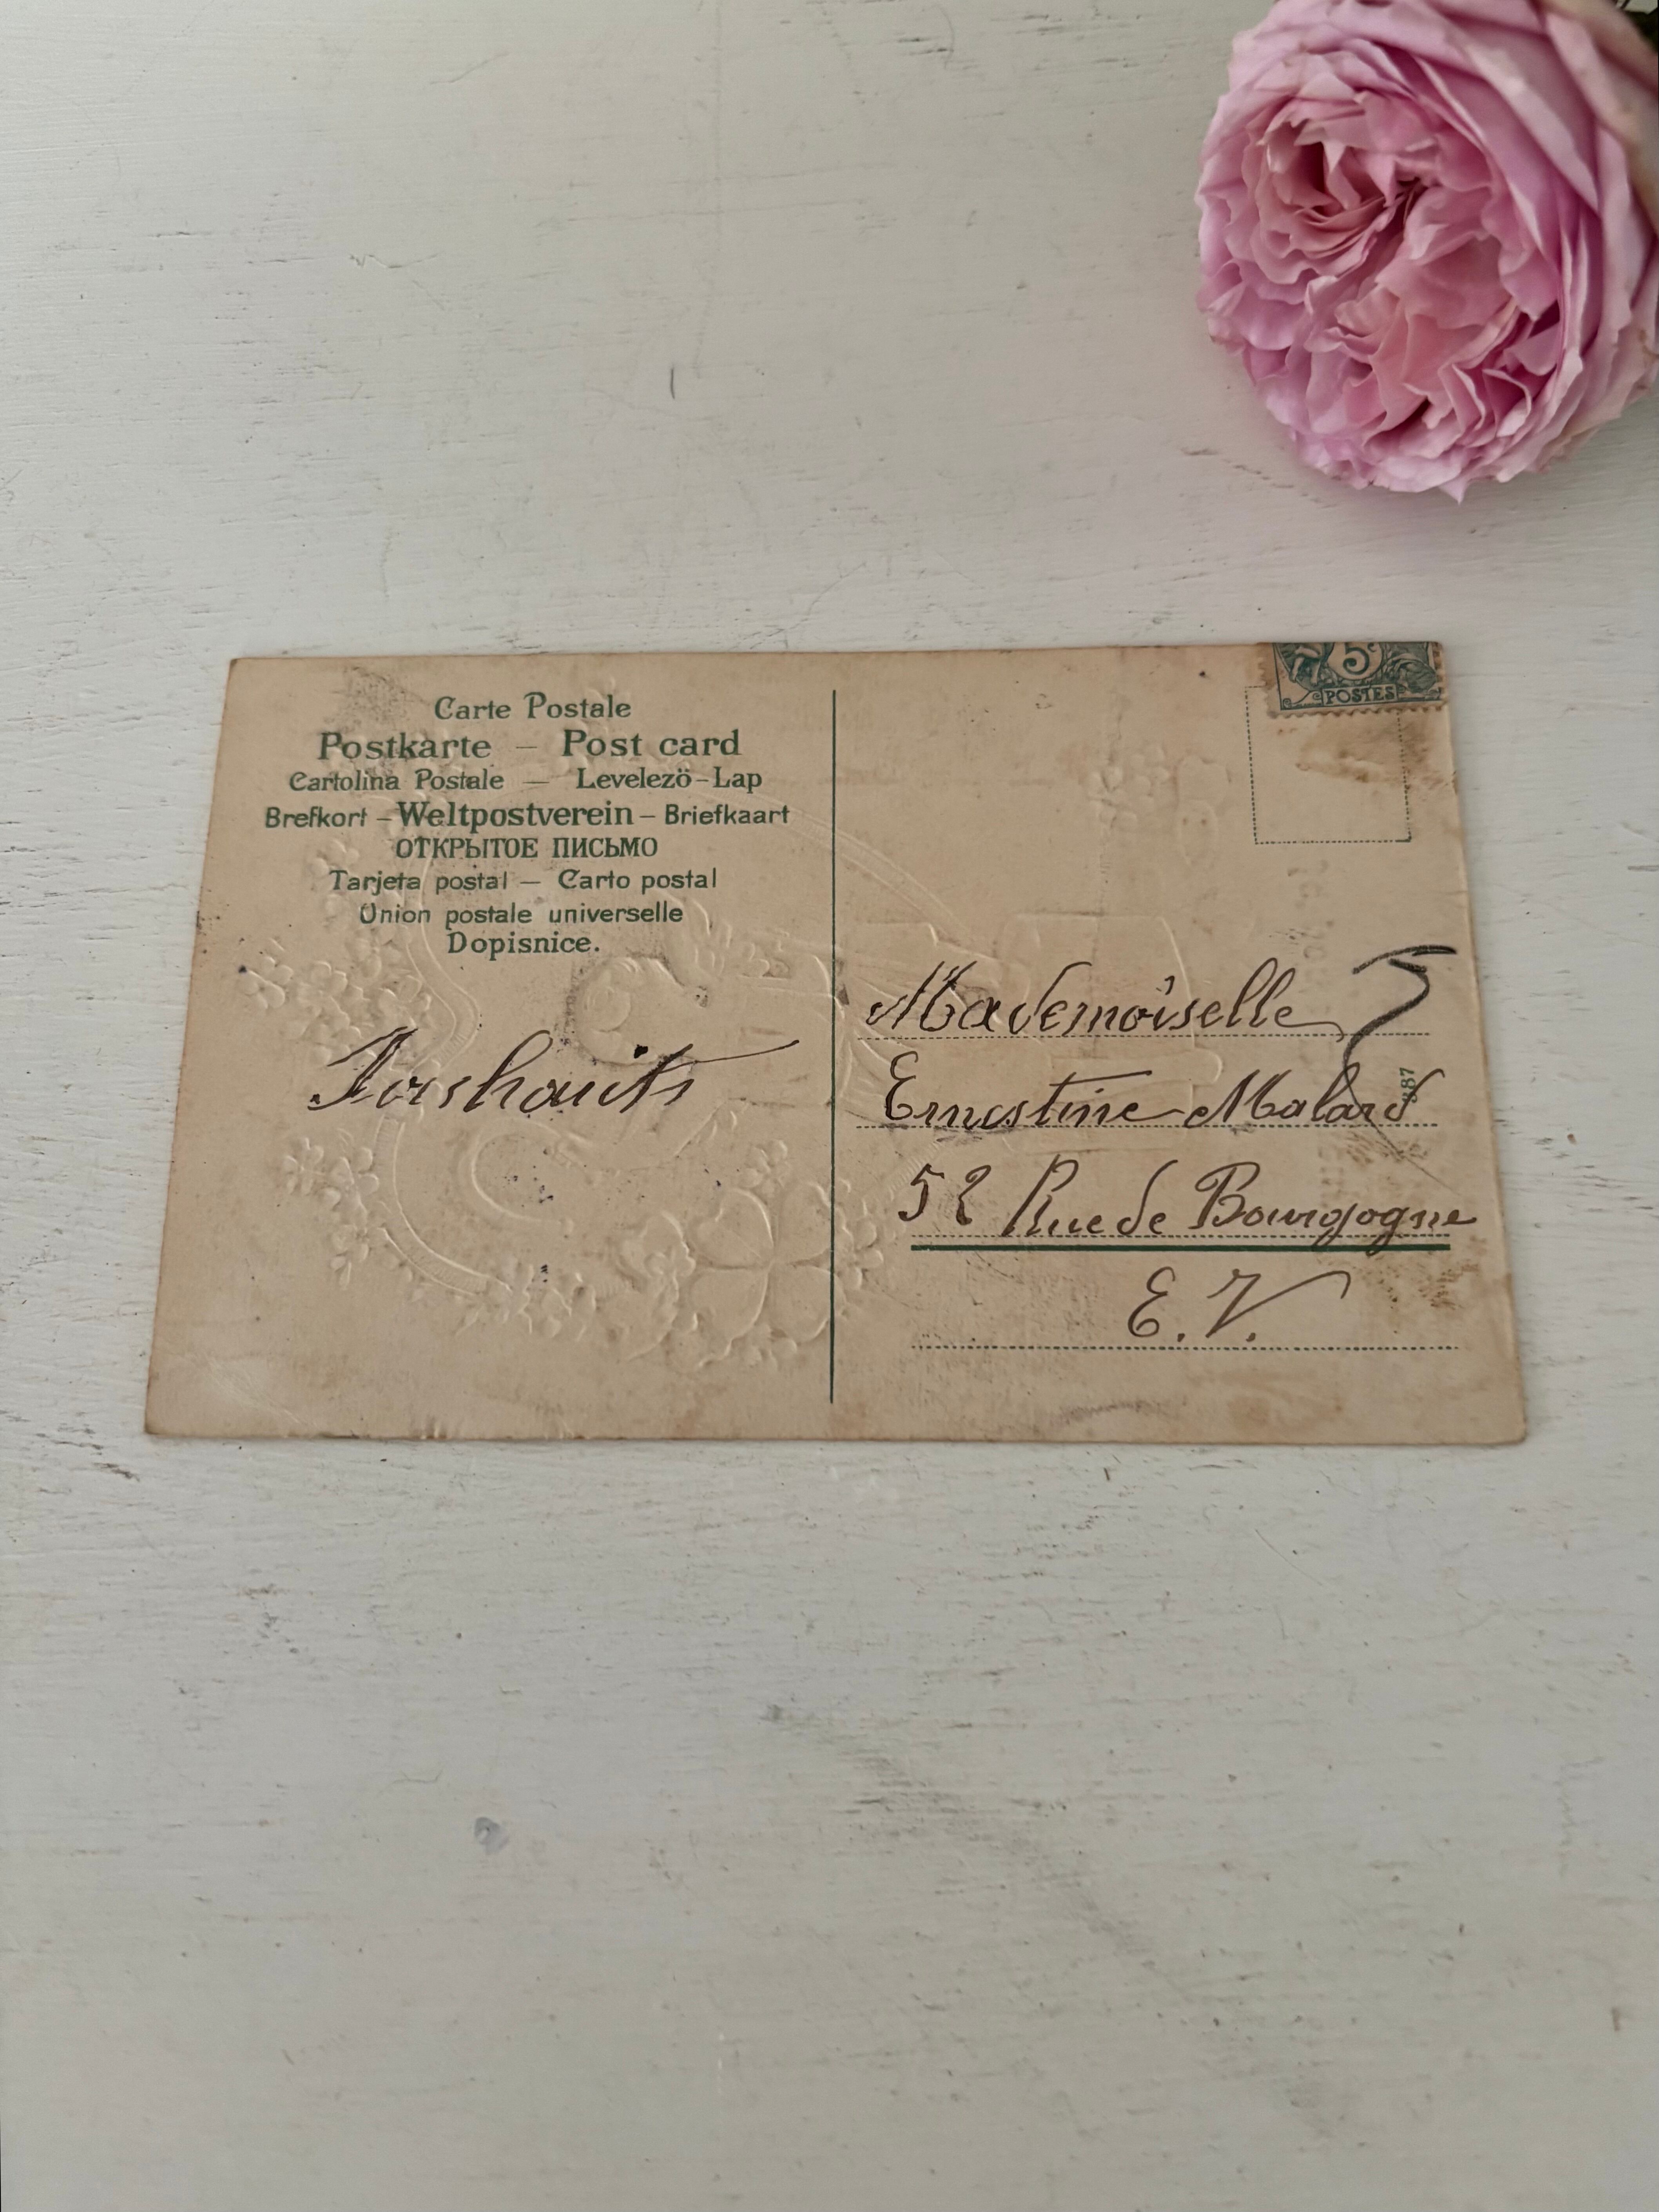 Carte Postale
Postkarte – Post card
Cartolina Postale — Levelezö-Lap
Brefkort – Weltpostverein – Briefkaart
ОТКРЫТОЕ ПИСЬМО
Tarjeta postal — Carto postal
Union postale universelle
Dopisnice.
5c
POSTES
Mademoiselle
Ernestine Malard
52 Rue de Bourgogne
E. V.